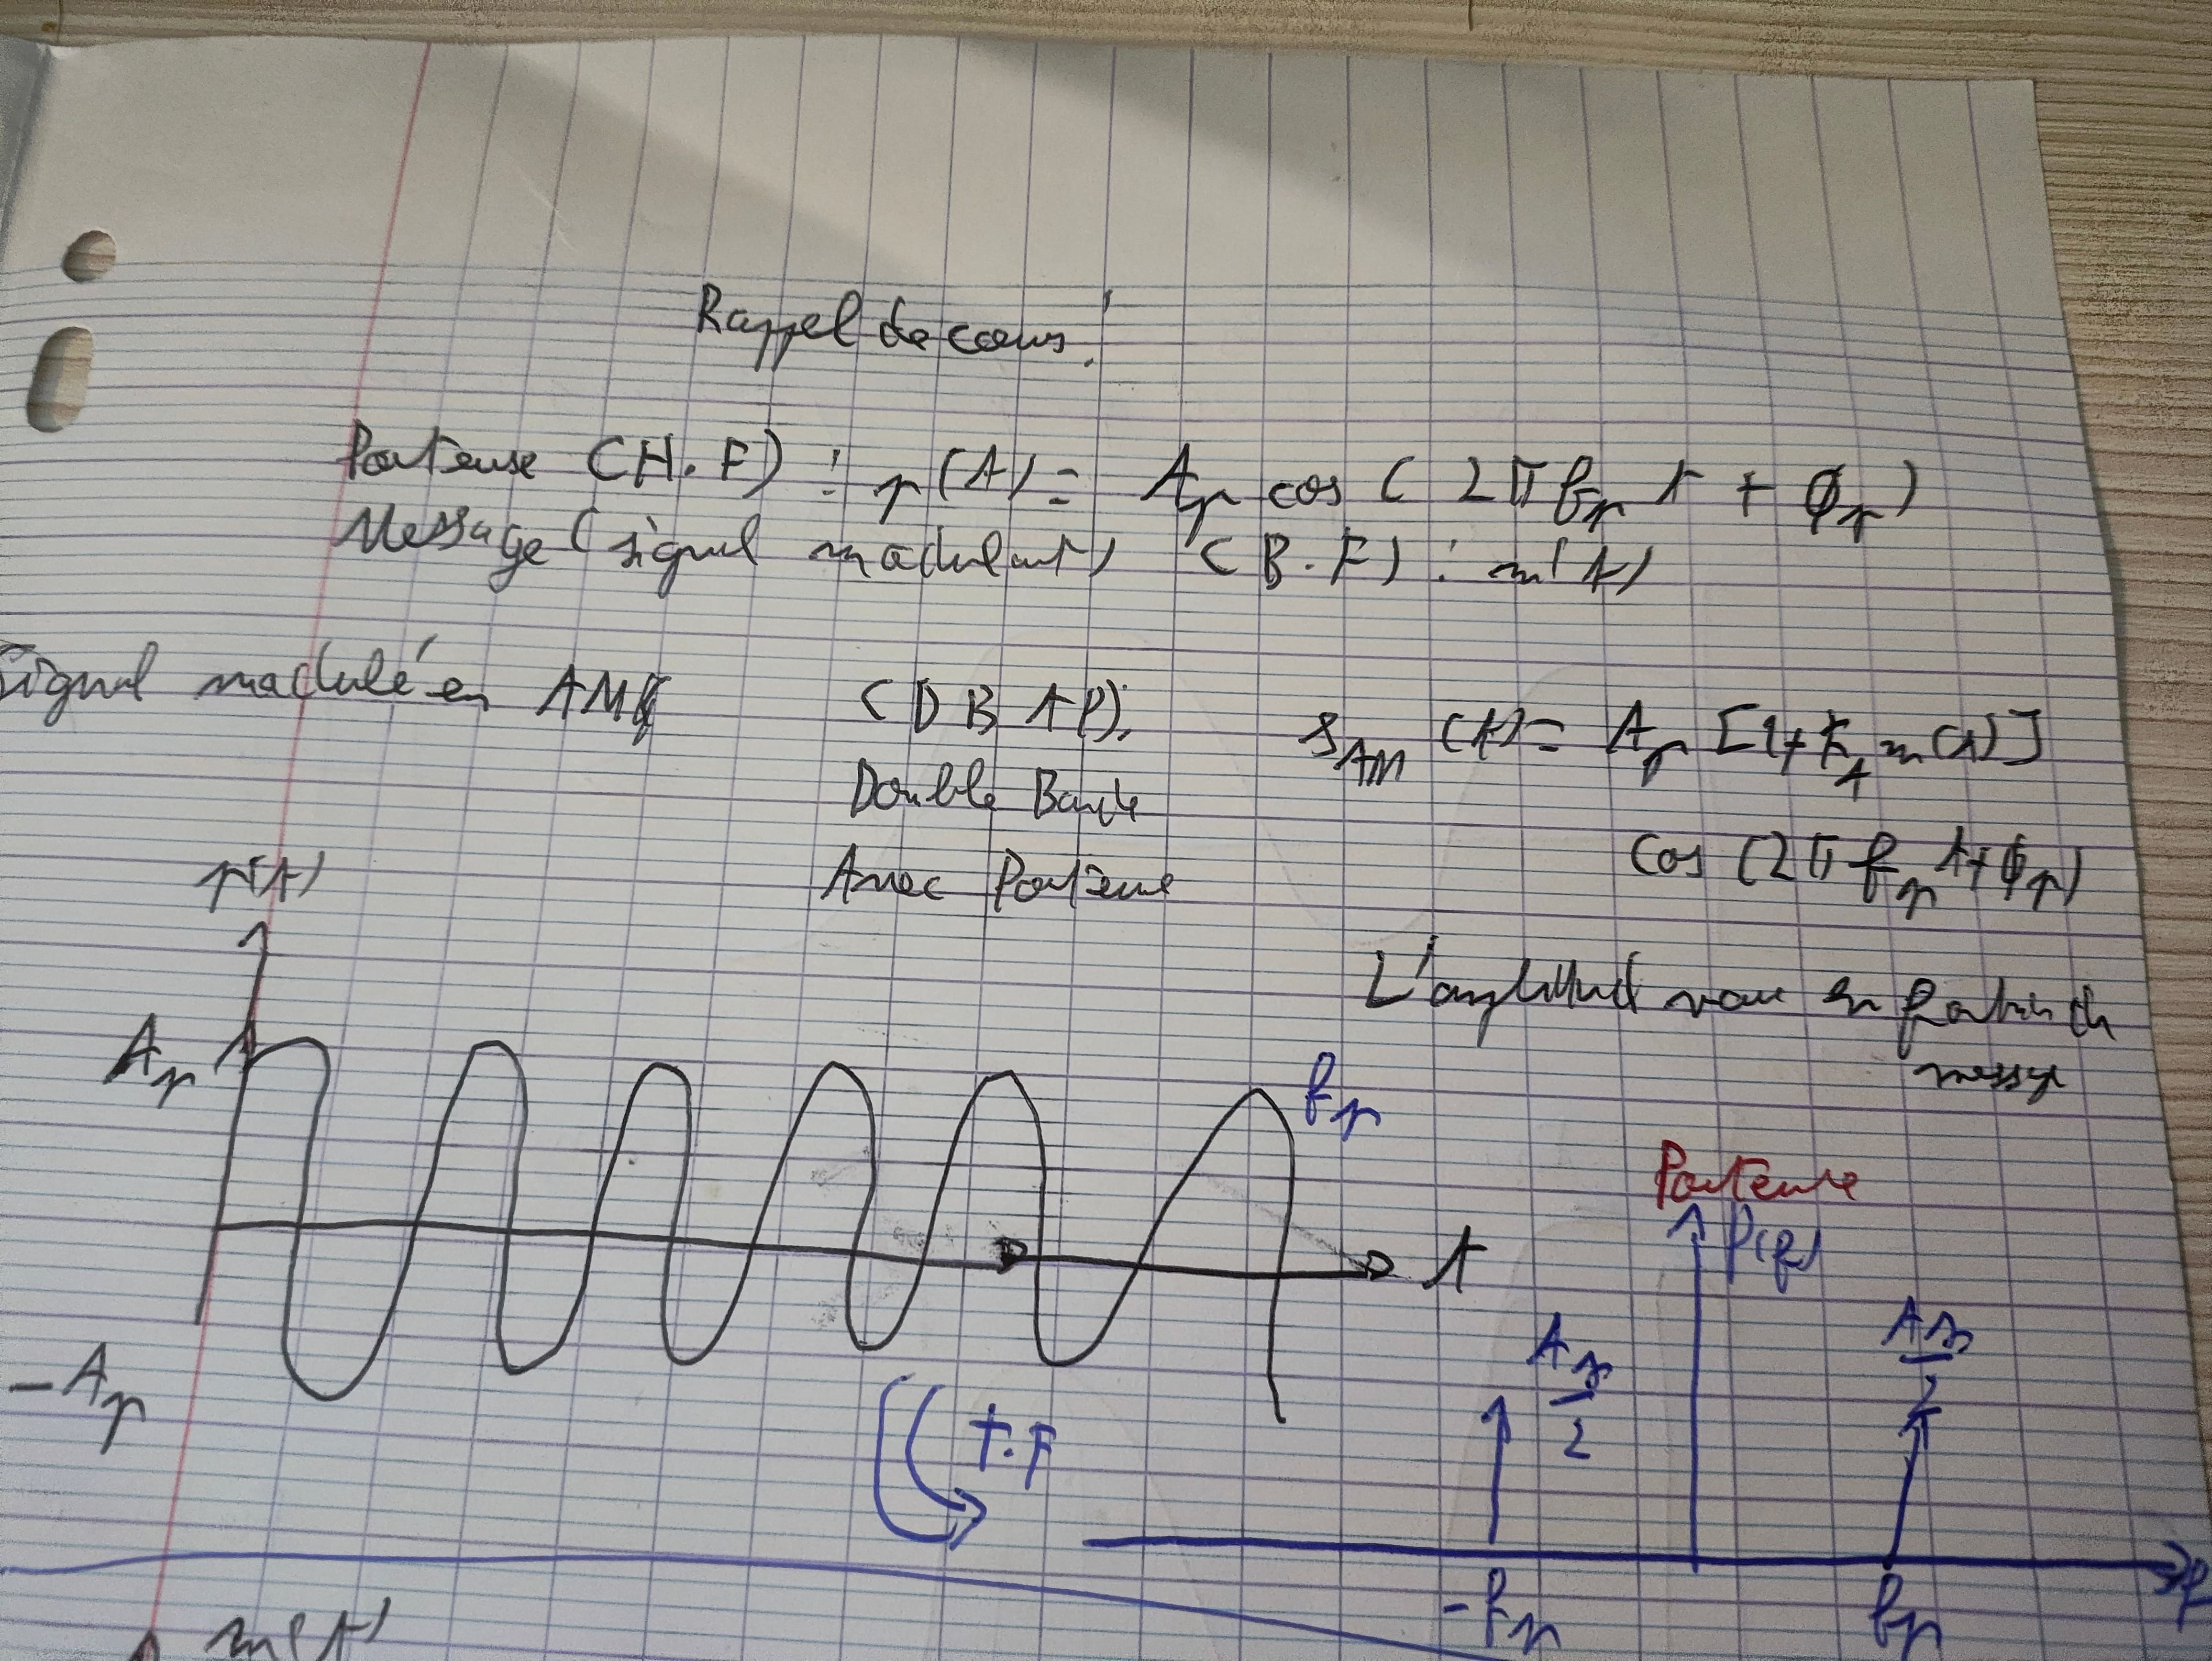 Rappel de cours :
Porteuse (H.F) : p(t) = Ap cos (2πfp t + ϕp)
Message (signal modulant) (B.F) : m(t)
Signal modulé en AM (DBAP), sAM (t) = Ap [1 + kA m(t)]
Double Bande
Avec Porteuse
cos (2π fp t + ϕp)
L'amplitude varie en fonction du
message
p(t)
Ap
fp
t
-Ap
T.F
Porteuse
P(f)
Ap/2
Ap/2
-fp
fp
f
m(t)